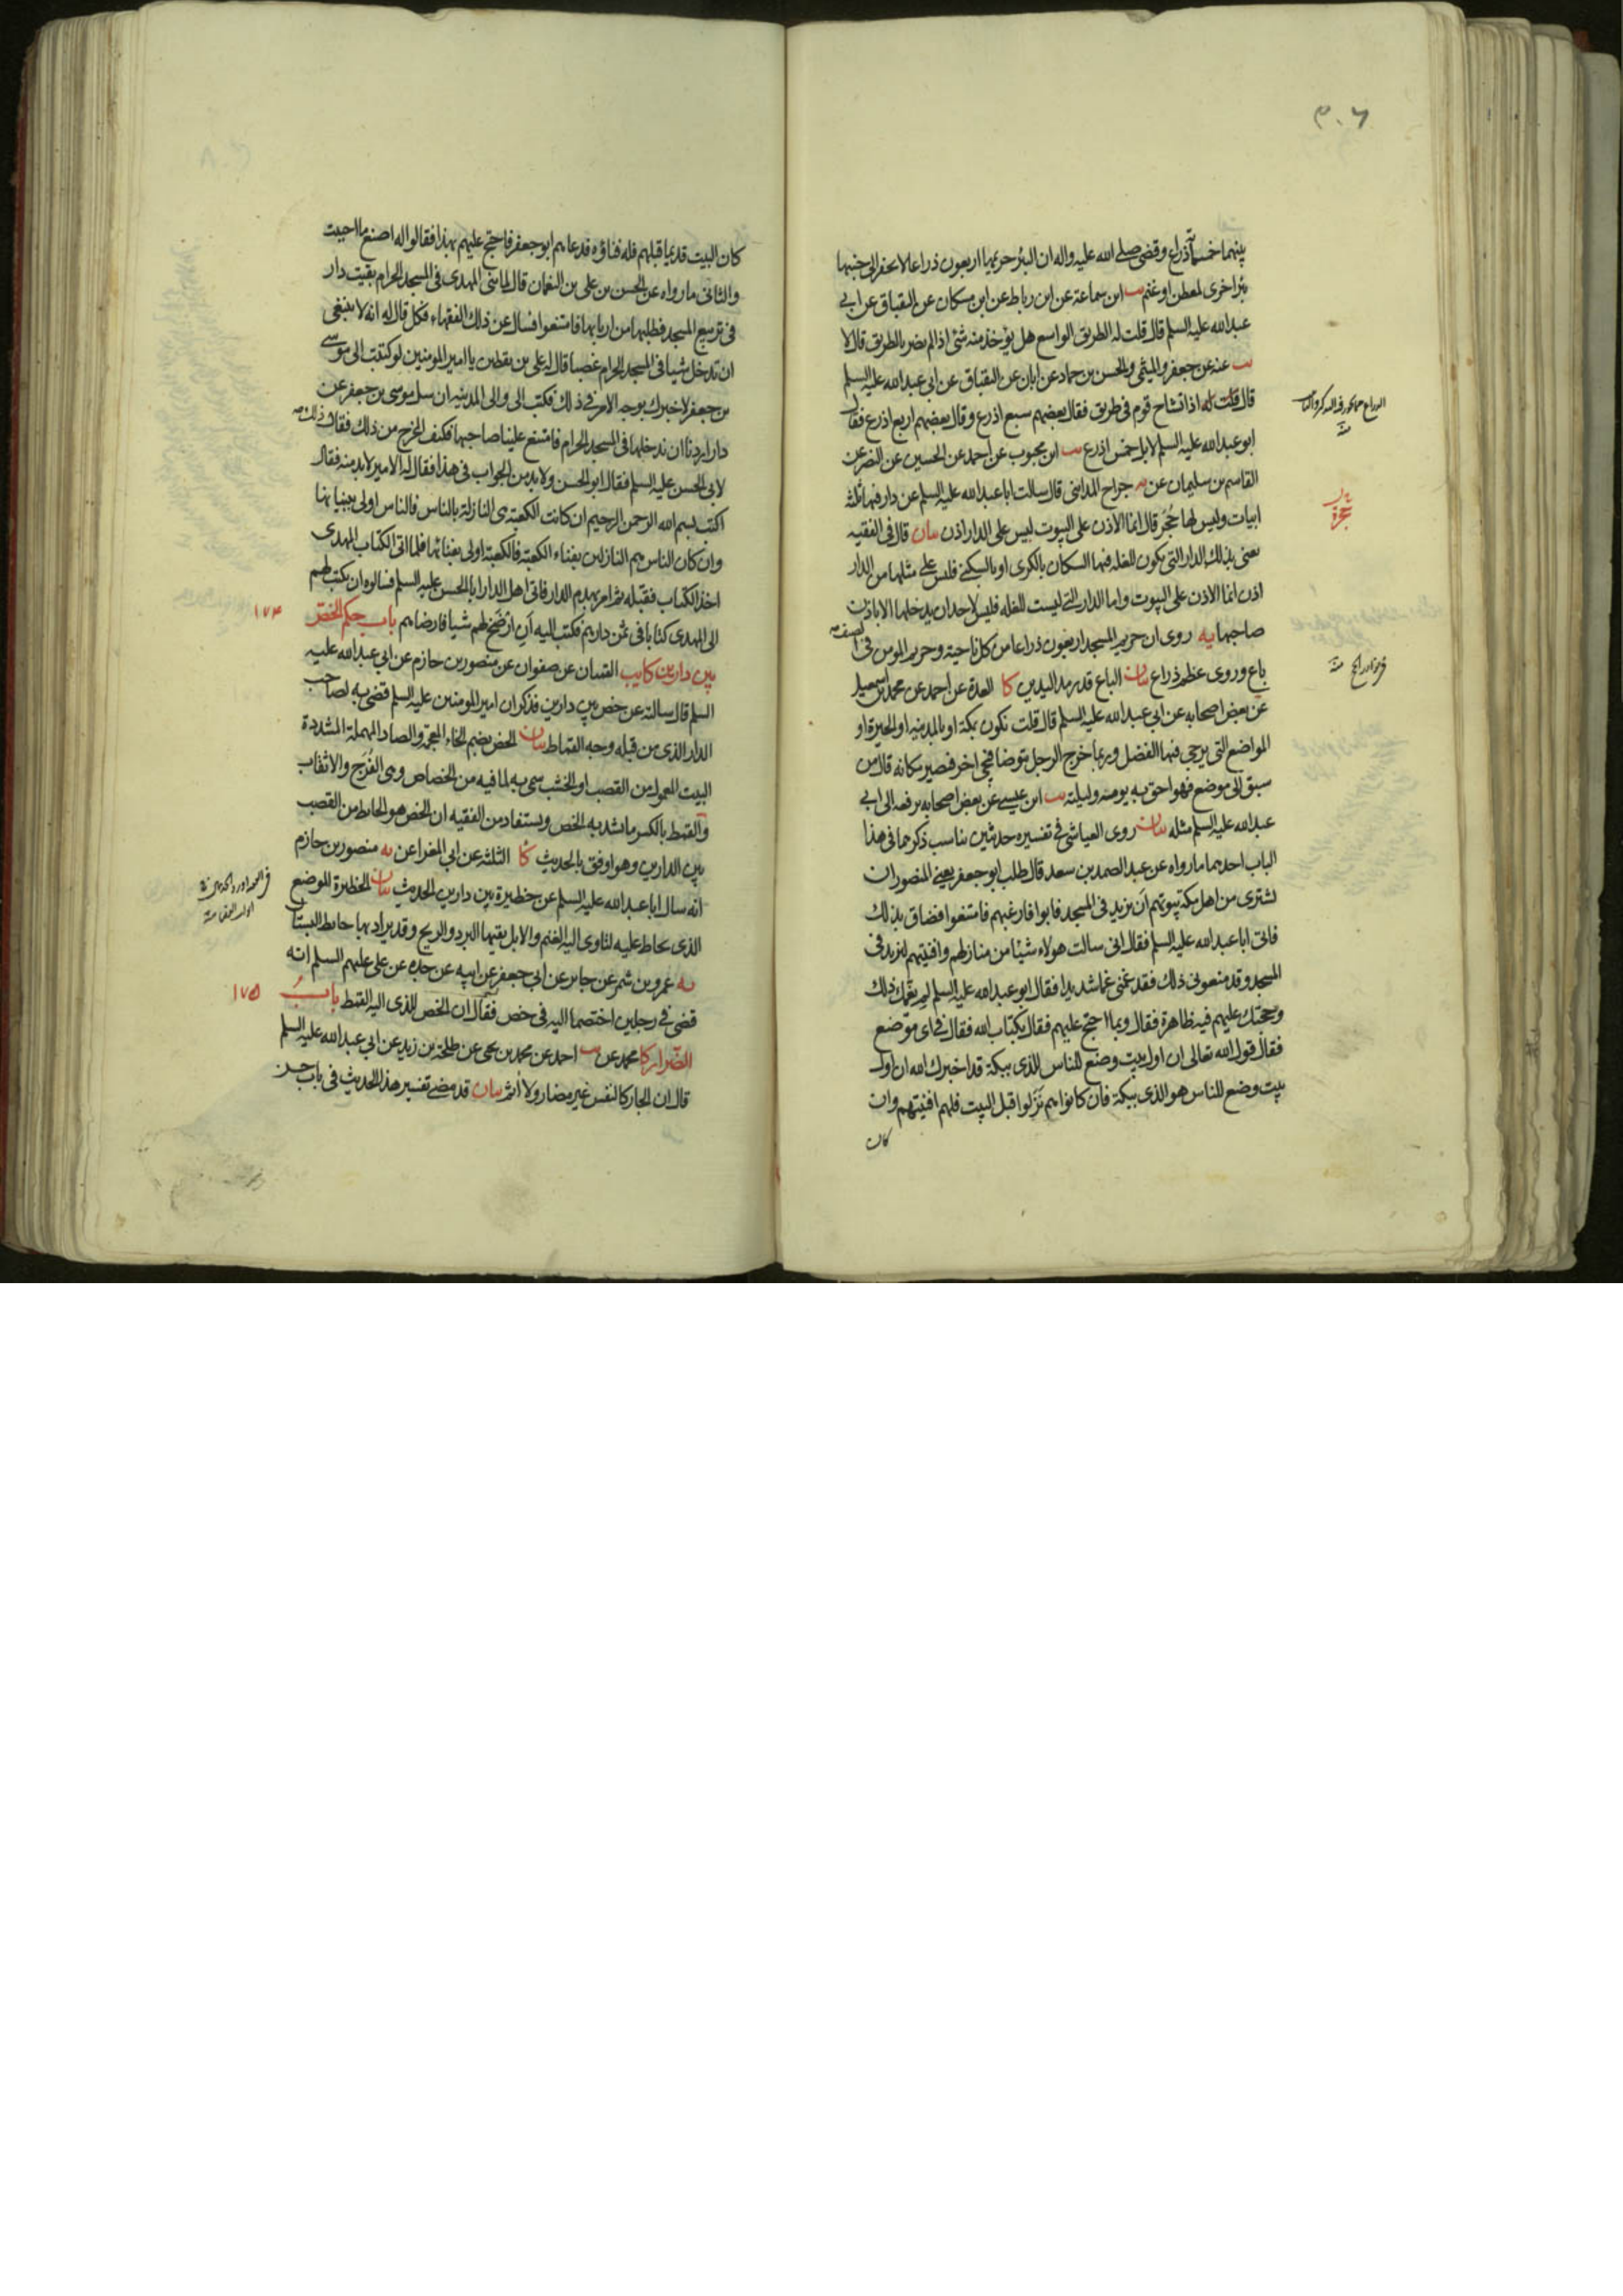 بينهما خمسمائة ذراع وقضى صلى الله عليه واله ان البئر حريمها اربعون ذراعا لا يحفر الى جنبها
بئر اخرى لمعطن او غنم يب ابن سماعة عن ابن رباط عن ابن مسكان عن البقباق عن ابي
عبدالله عليه السلم قال قلت له الطريق الواسع هل يؤخذ منه شئ اذا لم يضر بالطريق قال لا
يب عنه عن جعفر والميثمي والحسن بن حماد عن ابان عن البقباق عن ابي عبدالله عليه السلم
قال قلت له اذا تشاح قوم في طريق فقال بعضهم سبع اذرع وقال بعضهم اربع اذرع فقال
ابو عبدالله عليه السلم لا بل خمس اذرع يب ابن محبوب عن احمد عن الحسين عن النضر عن
القاسم بن سليمان عن يه جراح المدايني قال سالت ابا عبدالله عليه السلم عن دار فيها ثلثة
ابيات وليس لها حجر قال انما الاذن على البيوت ليس على الدار اذن بيان قال في الفقيه
يعني بذلك الدار التي يكون للغلة فيها السكان بالكرى او بالسكنى فليس على مثلها من الدار
اذن انما الاذن على البيوت واما الدار التي ليست للغلة فليس لاحد ان يدخلها الا باذن
صاحبها يه روي ان حريم المسجد اربعون ذراعا من كل ناحية وحريم المومن في الصيف
باع وروي عظم ذراع بيان الباع قدر مد اليدين كا العدة عن احمد عن محمد بن اسمعيل
عن بعض اصحابه عن ابي عبدالله عليه السلم قال قلت نكون بمكة او بالمدينة او الحيرة او
المواضع التي يرجى فيها الفضل وربما خرج الرجل يتوضا فيجئ اخر فيصير مكانه قال من
سبق الى موضع فهو احق به يومه وليلته يب ابن عيسى عن بعض اصحابه يرفعه الى ابي
عبدالله عليه السلم مثله بيان روى العياشي في تفسيره حديثين يناسب ذكرهما في هذا
الباب احدهما ما رواه عن عبد الصمد بن سعد قال طلب ابو جعفر يعني المنصور ان
يشتري من اهل مكة بيوتهم ان يزيد في المسجد فابوا فارغبهم فامتنعوا فضاق بذلك
فاتى ابا عبدالله عليه السلم فقال اني سالت هولاء شيئا من منازلهم وافنيتهم لنزيد في
المسجد وقد منعوني ذلك فقد غمني غما شديدا فقال ابو عبدالله عليه السلم لم يغمك ذلك
وحجتك عليهم فيه ظاهرة فقال وبما احتج عليهم فقال بكتاب الله فقال في اي موضع
فقال قول الله تعالى ان اول بيت وضع للناس للذي ببكة قد اخبرك الله ان اول
بيت وضع للناس هو الذي ببكة فان كانوا هم نزلوا قبل البيت فلهم افنيتهم وان
كان
كان البيت قديما قبلهم فله فناؤه فدعاهم ابو جعفر فاحتج عليهم بهذا فقالوا له اصنع ما احببت
والثاني ما رواه عن الحسن بن علي بن النعمان قال لما بنى المهدي في المسجد الحرام بقيت دار
في تربيع المسجد فطلبها من اربابها فامتنعوا فسال عن ذلك الفقهاء فكل قال له انه لا ينبغي
ان تدخل شيا في المسجد الحرام غصبا قال له علي بن يقطين يا امير المومنين لو كتبت الى موسى
بن جعفر لاخبرك بوجه الامر في ذلك فكتب الى والي المدينة ان سل موسى بن جعفر عن
دار اردنا ان ندخلها في المسجد الحرام فامتنع علينا صاحبها فكيف المخرج من ذلك فقال ذلك
لابي الحسن عليه السلم فقال ابو الحسن ولا بد من الجواب في هذا فقال له الامير لا بد منه فقال
اكتب بسم الله الرحمن الرحيم ان كانت الكعبة هي النازلة بالناس فالناس اولى ببنيانها
وان كان الناس هم النازلين بفناء الكعبة فالكعبة اولى بفنائها فلما اتى الكتاب المهدي
اخذ الكتاب فقبله ثم امر بهدم الدار فاتى اهل الدار ابا الحسن عليه السلم فسالوه ان يكتب لهم
الى المهدي كتابا في ثمن دارهم فكتب اليه ان ارضخ لهم شيا فارضاهم باب حكم الخص ١٧٤
بين دارين كا يب القميان عن صفوان عن منصور بن حازم عن ابي عبدالله عليه
السلم قال سالته عن خص بين دارين فذكر ان امير المومنين عليه السلم قضى به لصاحب
الدار الذي من قبله وجه القماط بيان الخص بضم الخاء المعجمة والصاد المهملة المشددة
البيت المعمول من القصب او الخشب سمي به لما فيه من الخصاص وهي الفرج والاثقاب
والقمط بالكسر ما يشد به الخص ويستفاد من الفقيه ان الخص هو الحايط من القصب
بين الدارين وهو اوفق بالحديث كا الثلثة عن ابي المغرا عن يه منصور بن حازم
انه سال ابا عبدالله عليه السلم عن حظيرة بين دارين الحديث بيان الحظيرة الموضع
الذي يحاط عليه لتاوي اليه الغنم والابل يقيها البرد والريح وقد يراد بها حايط البستان
يه عمرو بن شمر عن جابر عن ابي جعفر عن ابيه عن جده عن علي عليهم السلم انه
قضى في رجلين اختصما اليه في خص فقال ان الخص للذي اليه القمط باب ١٧٥
الضرار كا محمد عن يب احمد عن محمد بن يحيى عن طلحة بن زيد عن ابي عبدالله عليه السلم
قال ان الجار كالنفس غير مضار ولا اثم بيان قد مضى تفسير هذا الحديث في باب حسن